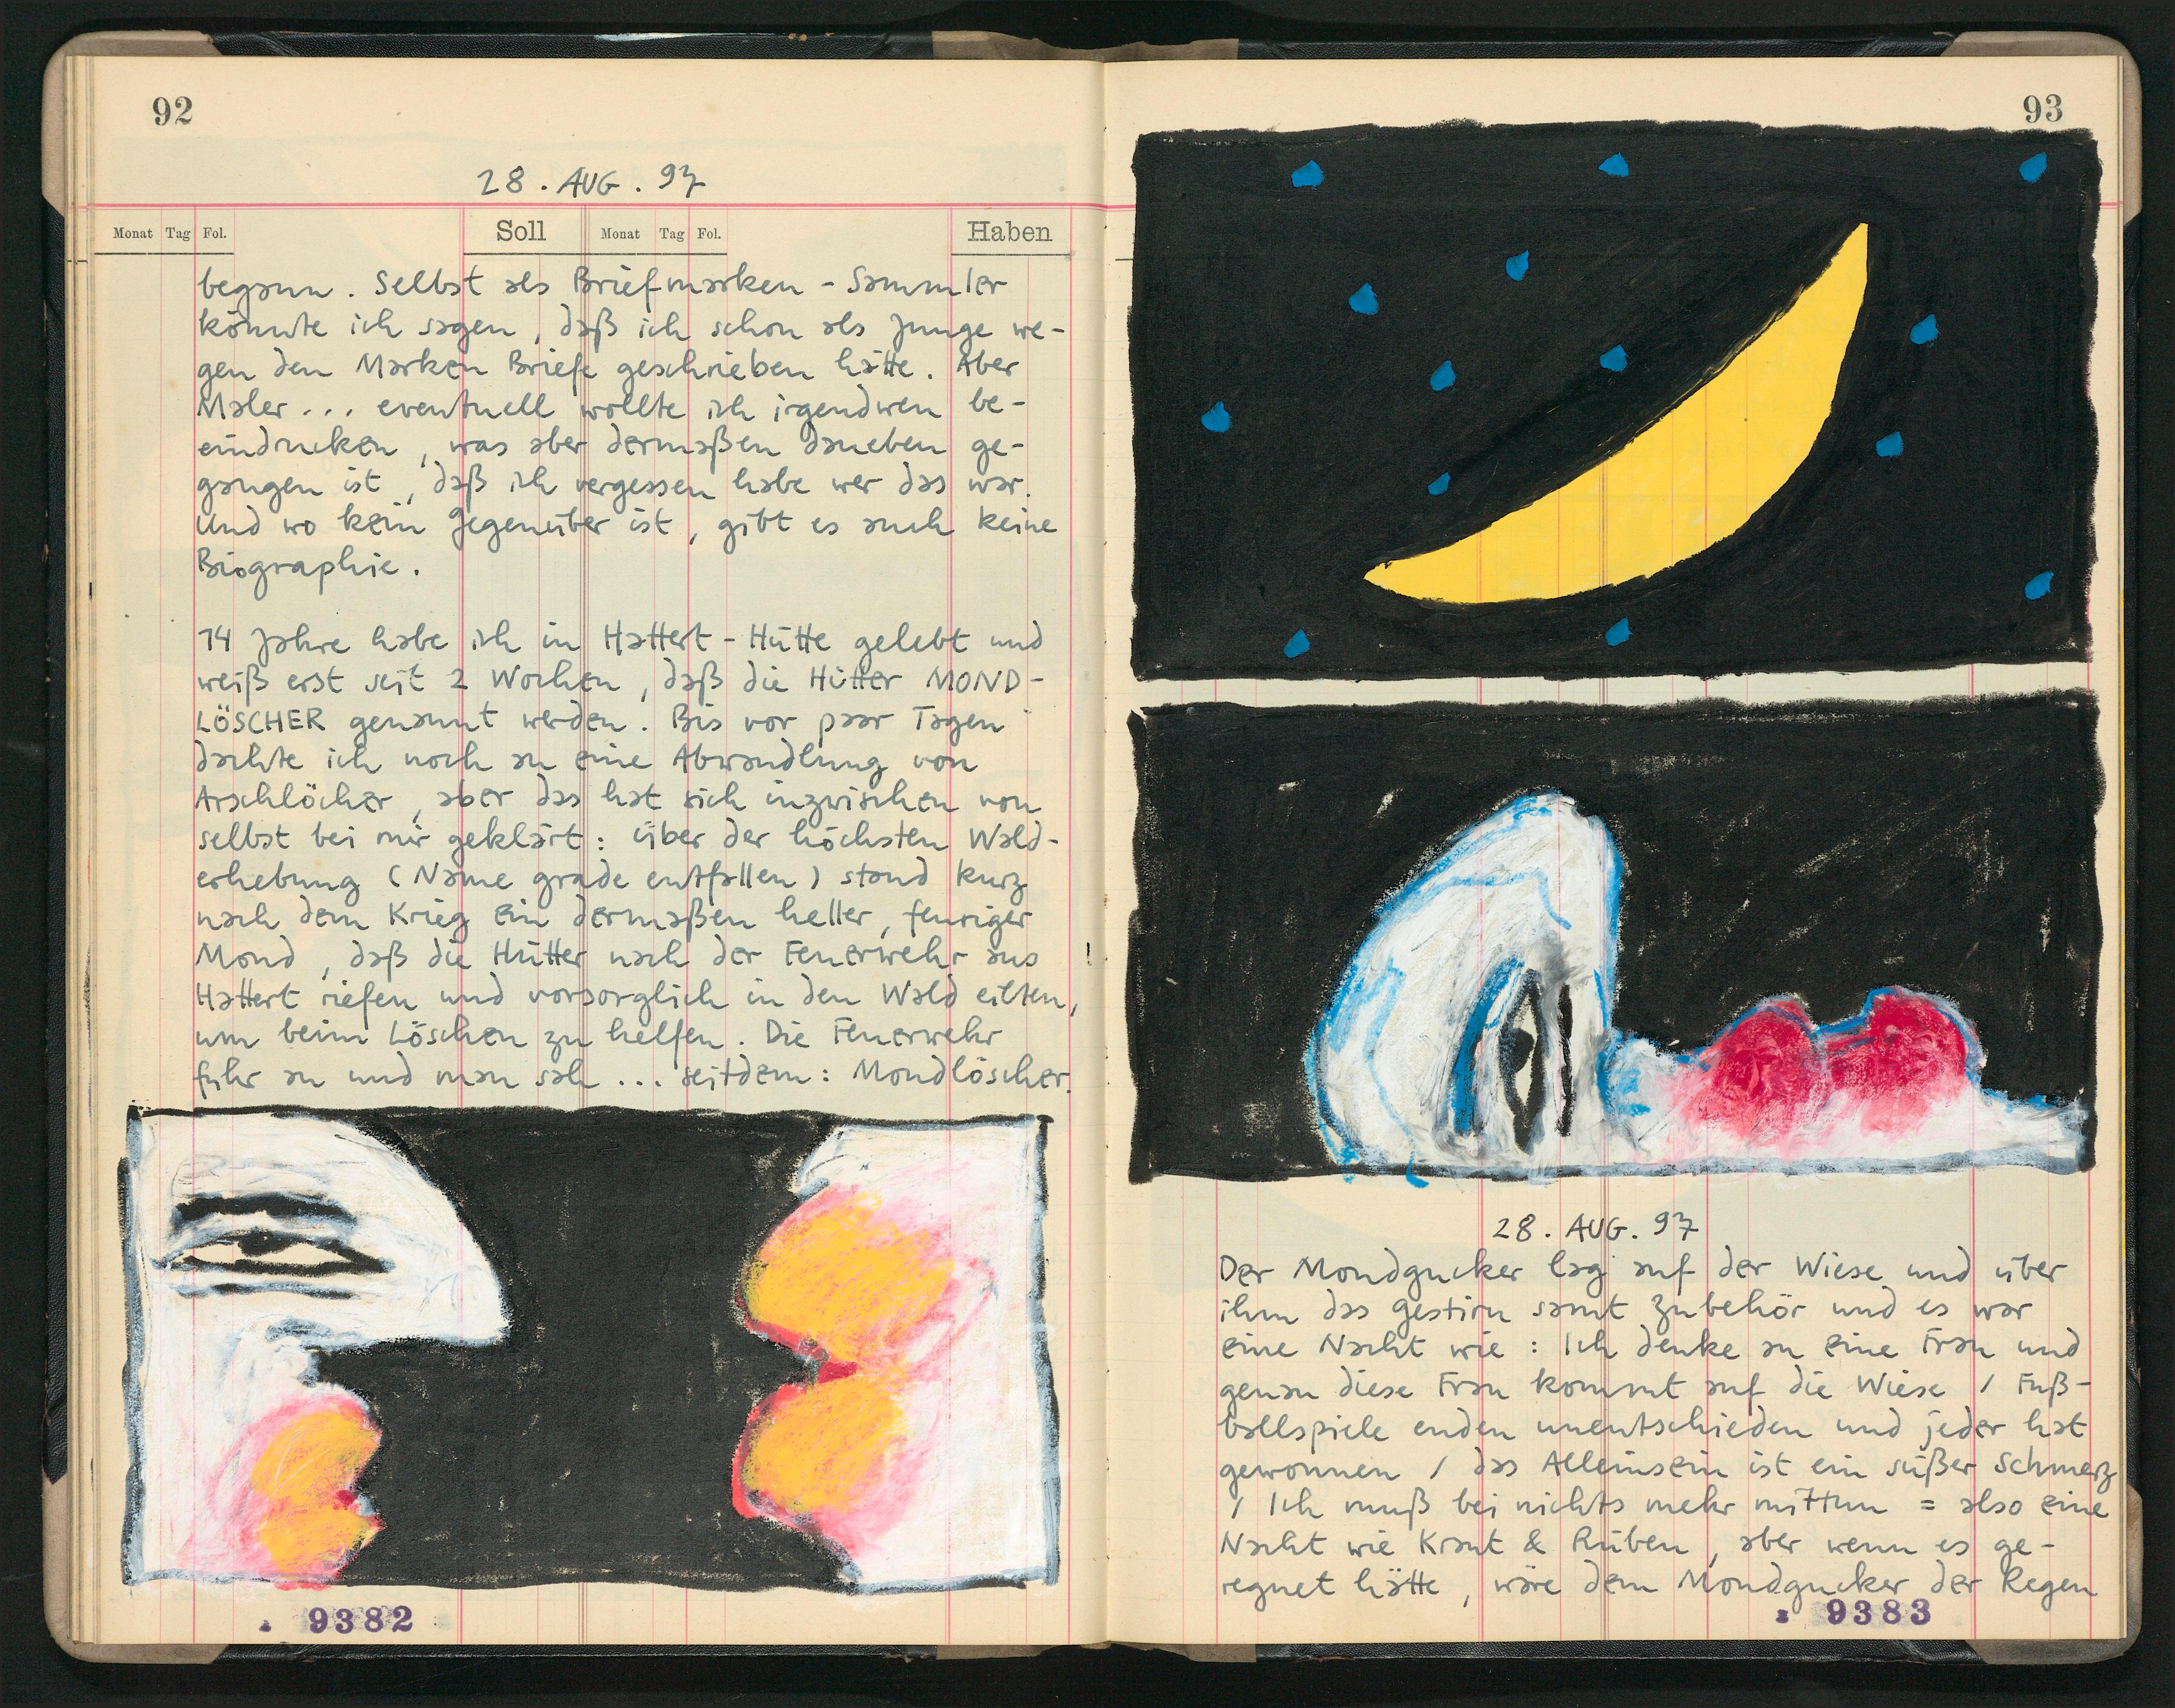 92
28. AUG. 97
Monat Tag Fol. Soll Monat Tag Fol. Haben
begann. Selbst als Briefmarken-Sammler
könnte ich sagen, daß ich schon als Junge we-
gen den Marken Briefe geschrieben hätte. Aber
Maler... eventuell wollte ich irgendwen be-
eindrucken, was aber dermaßen daneben ge-
gangen ist, daß ich vergessen habe wer das war.
Und wo kein Gegenüber ist, gibt es auch keine
Biographie.
14 Jahre habe ich in Hattert-Hütte gelebt und
weiß erst seit 2 Wochen, daß die Hütter MOND-
LÖSCHER genannt werden. Bis vor paar Tagen
dachte ich noch an eine Abwandlung von
Arschlöcher, aber das hat sich inzwischen von
selbst bei mir geklärt: über der höchsten Wald-
erhebung (Name grade entfallen) stand kurz
nach dem Krieg ein dermaßen heller, feuriger
Mond, daß die Hütter nach der Feuerwehr aus
Hattert riefen und vorsorglich in den Wald eilten,
um beim Löschen zu helfen. Die Feuerwehr
fuhr an und man sah... seitdem: Mondlöscher.
9382
93
28. AUG. 97
Der Mondgucker lag auf der Wiese und über
ihm das Gestirn samt Zubehör und es war
eine Nacht wie: Ich denke an eine Frau und
genau diese Frau kommt auf die Wiese / Fuß-
ballspiele enden unentschieden und jeder hat
gewonnen / das Alleinsein ist ein süßer Schmerz
/ Ich muß bei nichts mehr mittun = also eine
Nacht wie Kraut & Rüben, aber wenn es ge-
regnet hätte, wäre dem Mondgucker der Regen
9383